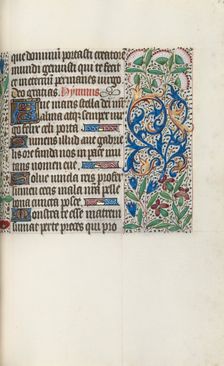 que dominum portasti creatorem
mundi genuisti qui te fecit
et in eternum permanes virgo
deo gratias. Hymnus.
Ave maris stella dei
alma atq; semper vir
go felix celi porta.
Sumens illud ave gabrie
lis ore funda nos in pace mu
tans nomen eve.
Solve vincla reis profer
lumen cecis mala nra pelle
bona cuncta posce.
Monstra te esse matrem
sumat per te preces qui pro